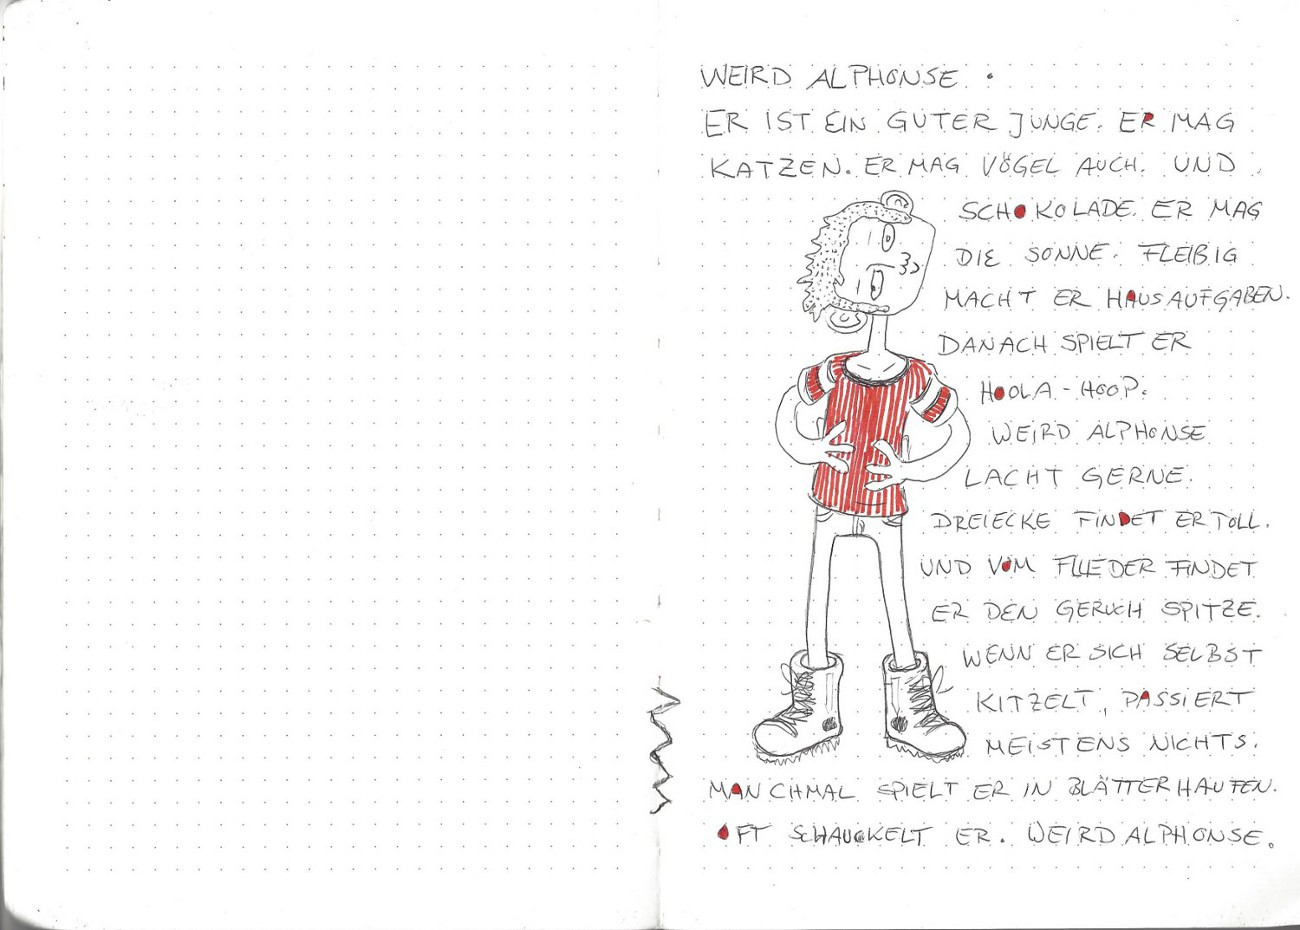 WEIRD ALPHONSE.
ER IST EIN GUTER JUNGE. ER MAG
KATZEN. ER MAG VÖGEL AUCH. UND
SCHOKOLADE. ER MAG
DIE SONNE. FLEIßIG
MACHT ER HAUSAUFGABEN.
DANACH SPIELT ER
HOOLA-HOOP.
WEIRD ALPHONSE
LACHT GERNE.
DREIECKE FINDET ER TOLL.
UND VOM FLIEDER FINDET
ER DEN GERUCH SPITZE.
WENN ER SICH SELBST
KITZELT, PASSIERT
MEISTENS NICHTS.
MANCHMAL SPIELT ER IN BLÄTTERHAUFEN.
OFT SCHAUCKELT ER. WEIRD ALPHONSE.